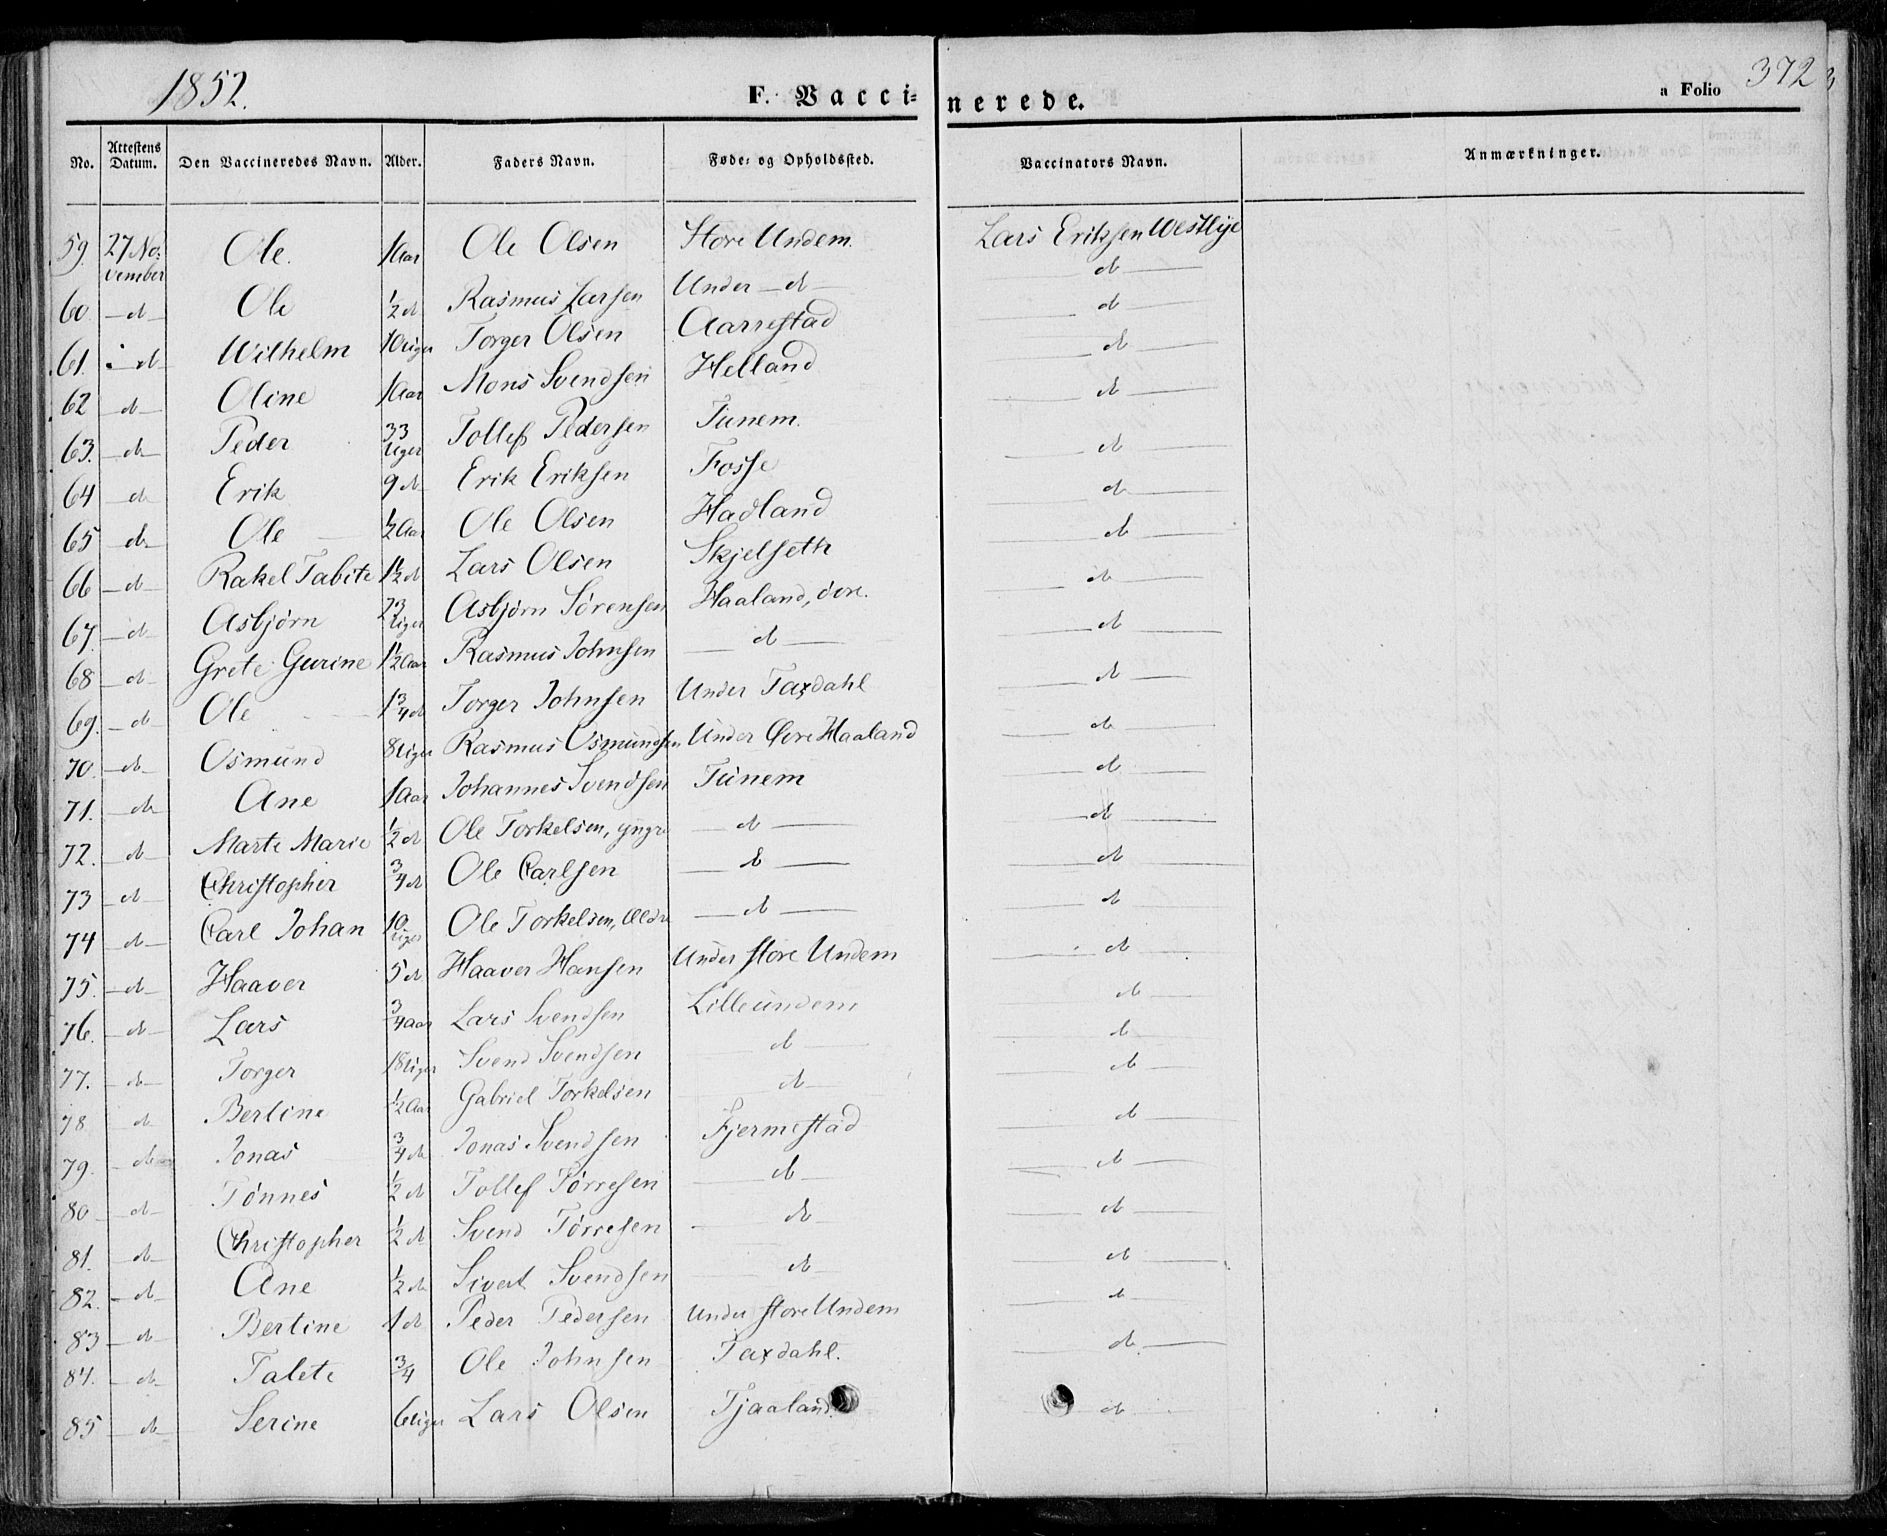 1852.
F. Vaccinerede.
a Folio 372
No. Attestens Datum. Den Vaccineredes Navn. Alder. Faders Navn. Føde- og Opholdssted. Vaccinators Navn. Anmærkninger.
59. 27 November Ole. 1 Aar Ole Olsen Store Undem. Lars Eriksen Westlye
60. —d— Ole ½ d Rasmus Larsen Under —d— —d—
61. —d— Wilhelm 10 Uger Torger Olsen Aarrestad —d—
62 —d— Oline 1 Aar Mons Svendsen Helland —d—
63. —d— Peder 33 Uger Tollef Pedersen Tunem. —d—
64 —d— Erik 9 d Erik Eriksen Fosse —d—
65 —d— Ole ½ Aar Ole Olsen Hadland —d—
66 —d— Rakel Tabite 1½ d Lars Olsen Skjelseth —d—
67. —d— Asbjørn 23 Uger Asbjørn Sørensen Haaland, övre. —d—
68 —d— Grete Gurine 1½ Aar Rasmus Johnsen —d— —d—
69. —d— Ole 1¾ d Torger Johnsen Under Taxdahl —d—
70. —d— Osmund 8 Uger Rasmus Osmundsen Under Övre Haaland —d—
71. —d— Ane 1 Aar Johannes Svendsen Tunem —d—
72. —d— Marte Marie ½ d Ole Torkelsen, yngre —d— —d—
73 —d— Christopher ¾ d Ole Carlsen —d— —d—
74 —d— Carl Johan 10 Uger Ole Torkelsen, Ældre —d— —d—
75. —d— Haaver 5 d Haaver Hansen Under store Undem —d—
76. —d— Lars ¾ Aar Lars Svendsen Lilleundem —d—
77. —d— Torger 18 Uger Svend Svendsen —d— —d—
78 d— Bertine ½ Aar Gabriel Torkelsen —d— —d—
79. —d— Jonas ¾ d Jonas Svendsen Fjermestad —d—
80 —d— Tønnes ½ d Tollef Tørresen —d— —d—
81. —d— Christopher ½ d Svend Tørresen —d— —d—
82. —d— Ane ½ d Sivert Svendsen —d— —d—
83 —d— Bertine 1 d Peder Pedersen Under store Undem —d—
84. —d— Talete ¾ Ole Johnsen Taxdahl. —d—
85 —d— Serine 6 Uger Lars Olsen Tjaaland. —d—